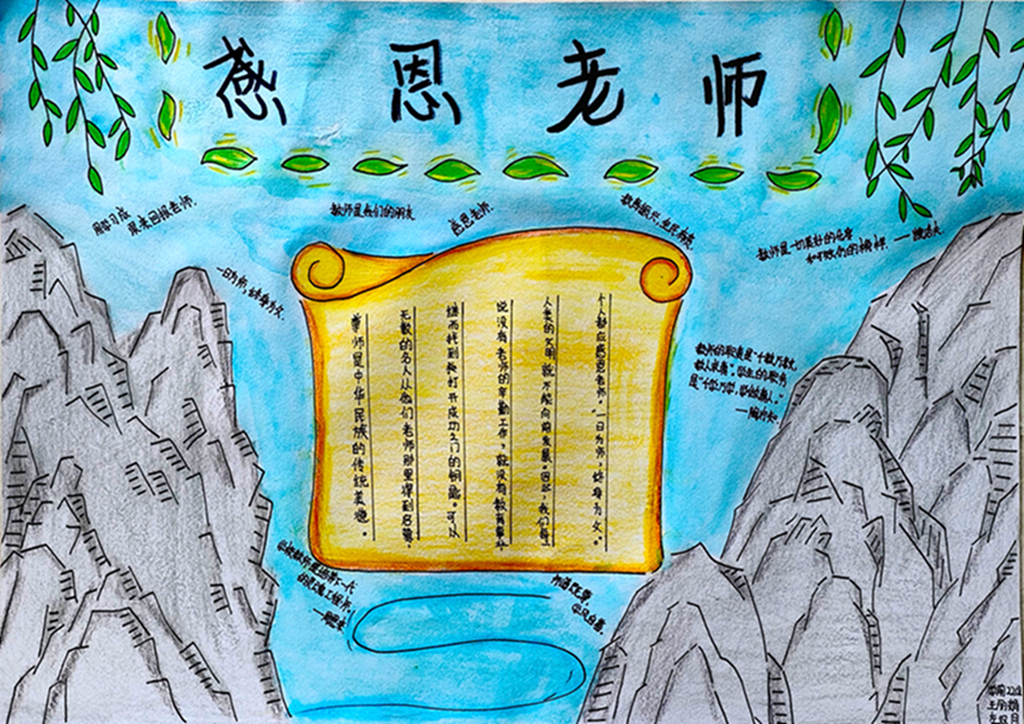 感恩老师
用学习成
果来回报老师.
教师是我们的朋友
感恩老师.
一日为师，终身为父.
教师是一切美好的化身
和可效仿的榜样.
尊师是中华民族的传统美德。
无数的名人从他们老师那里得到启蒙，
继而找到打开成功之门的钥匙。可以
说没有老师的辛勤工作，就没有教育事业
人类的文明就不能向前发展。因此，我们每
个人都应感恩老师，"一日为师，终身为父。"
教师的职责是"千教万教，
教人求真"。学生的职责
是"千学万学，学做真人。"